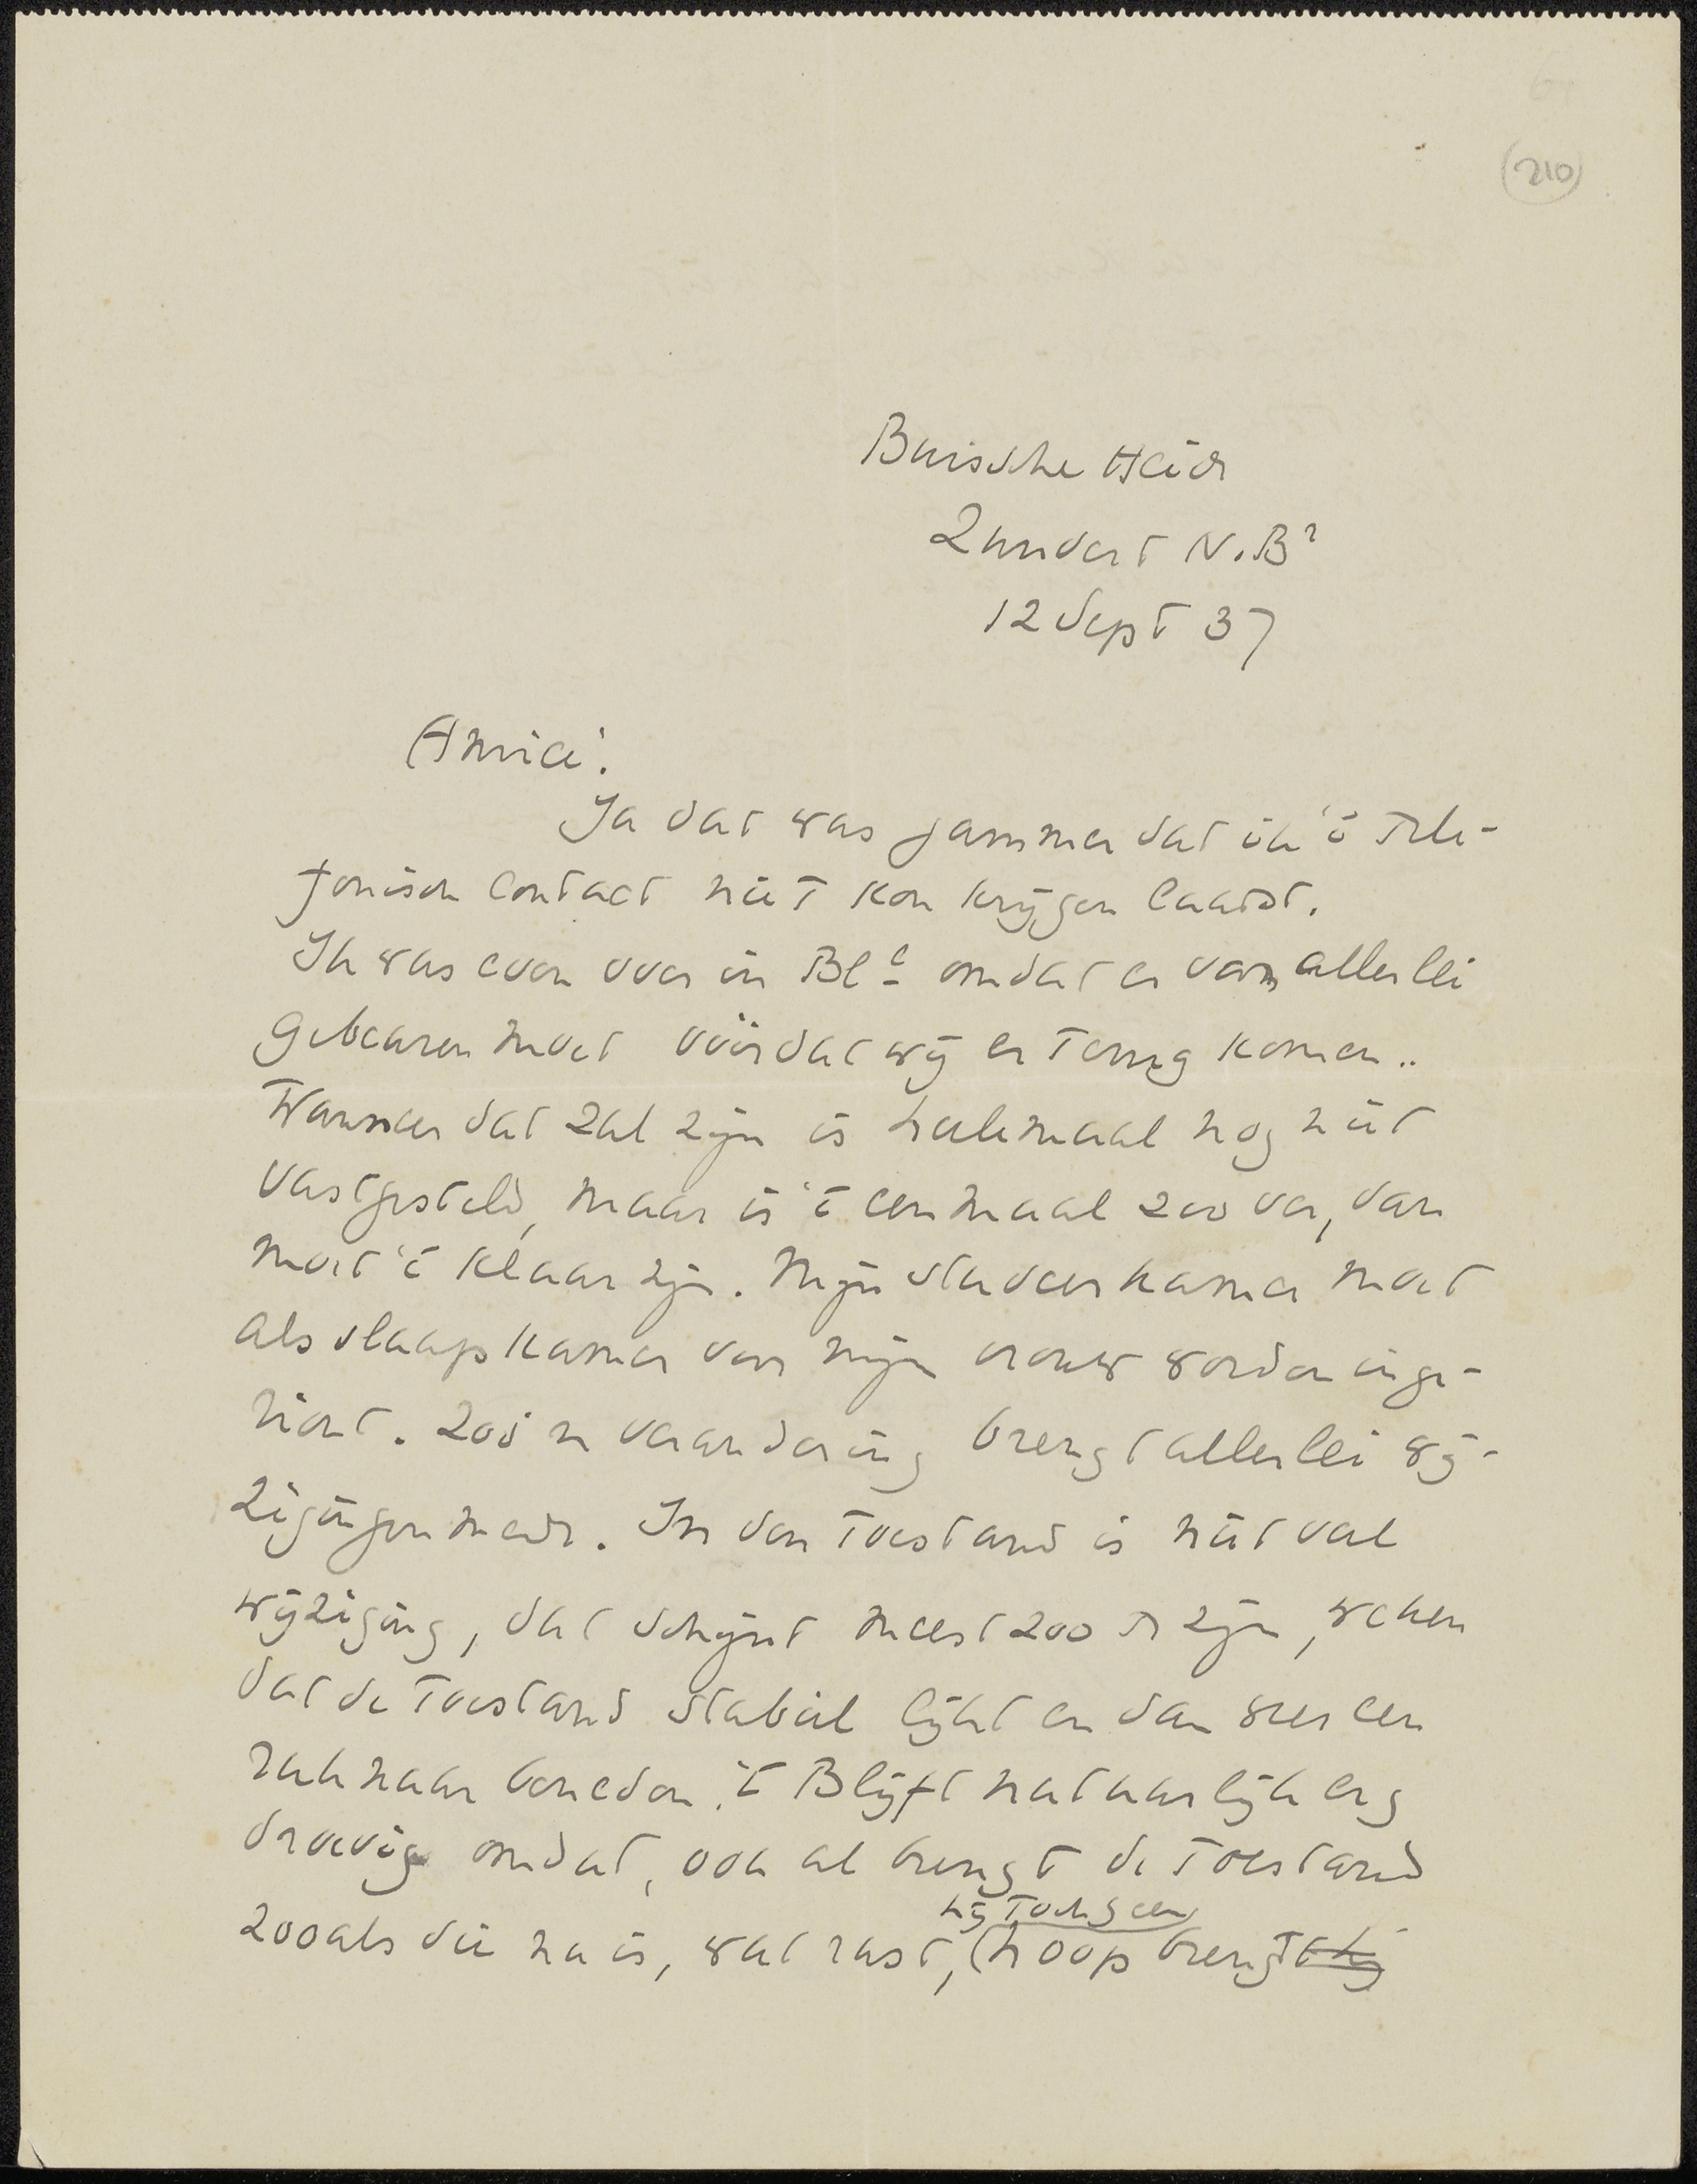 (210)
Buissche Heide
Zundert N.Br
12 Sept 37
Amice!
Ja dat was jammer dat ik 't tele-
fonisch contact niet kon krijgen laatst.
Ik was even over in Bl. omdat er van allerlei
gebeuren moet vóórdat wij er terug komen..
Wanneer dat zal zijn is heelemaal nog niet
vastgesteld, maar is 't eenmaal zoo ver, dan
moet 't klaar zijn. Mijn studeerkamer moet
als slaapkamer voor mijn vrouw worden inge-
richt. Zoo'n verandering brengt allerlei wij-
zigingen mede. In den toestand is niet veel
wijziging, dat schijnt meest zoo te zijn, weken
dat de toestand stabiel lijkt en dan weer een
ruk naar beneden. 't Blijft natuurlijk erg
droevig omdat, ook al brengt de toestand
hij toch geen
zooals die nu is, wat rust, hoop brengt hij